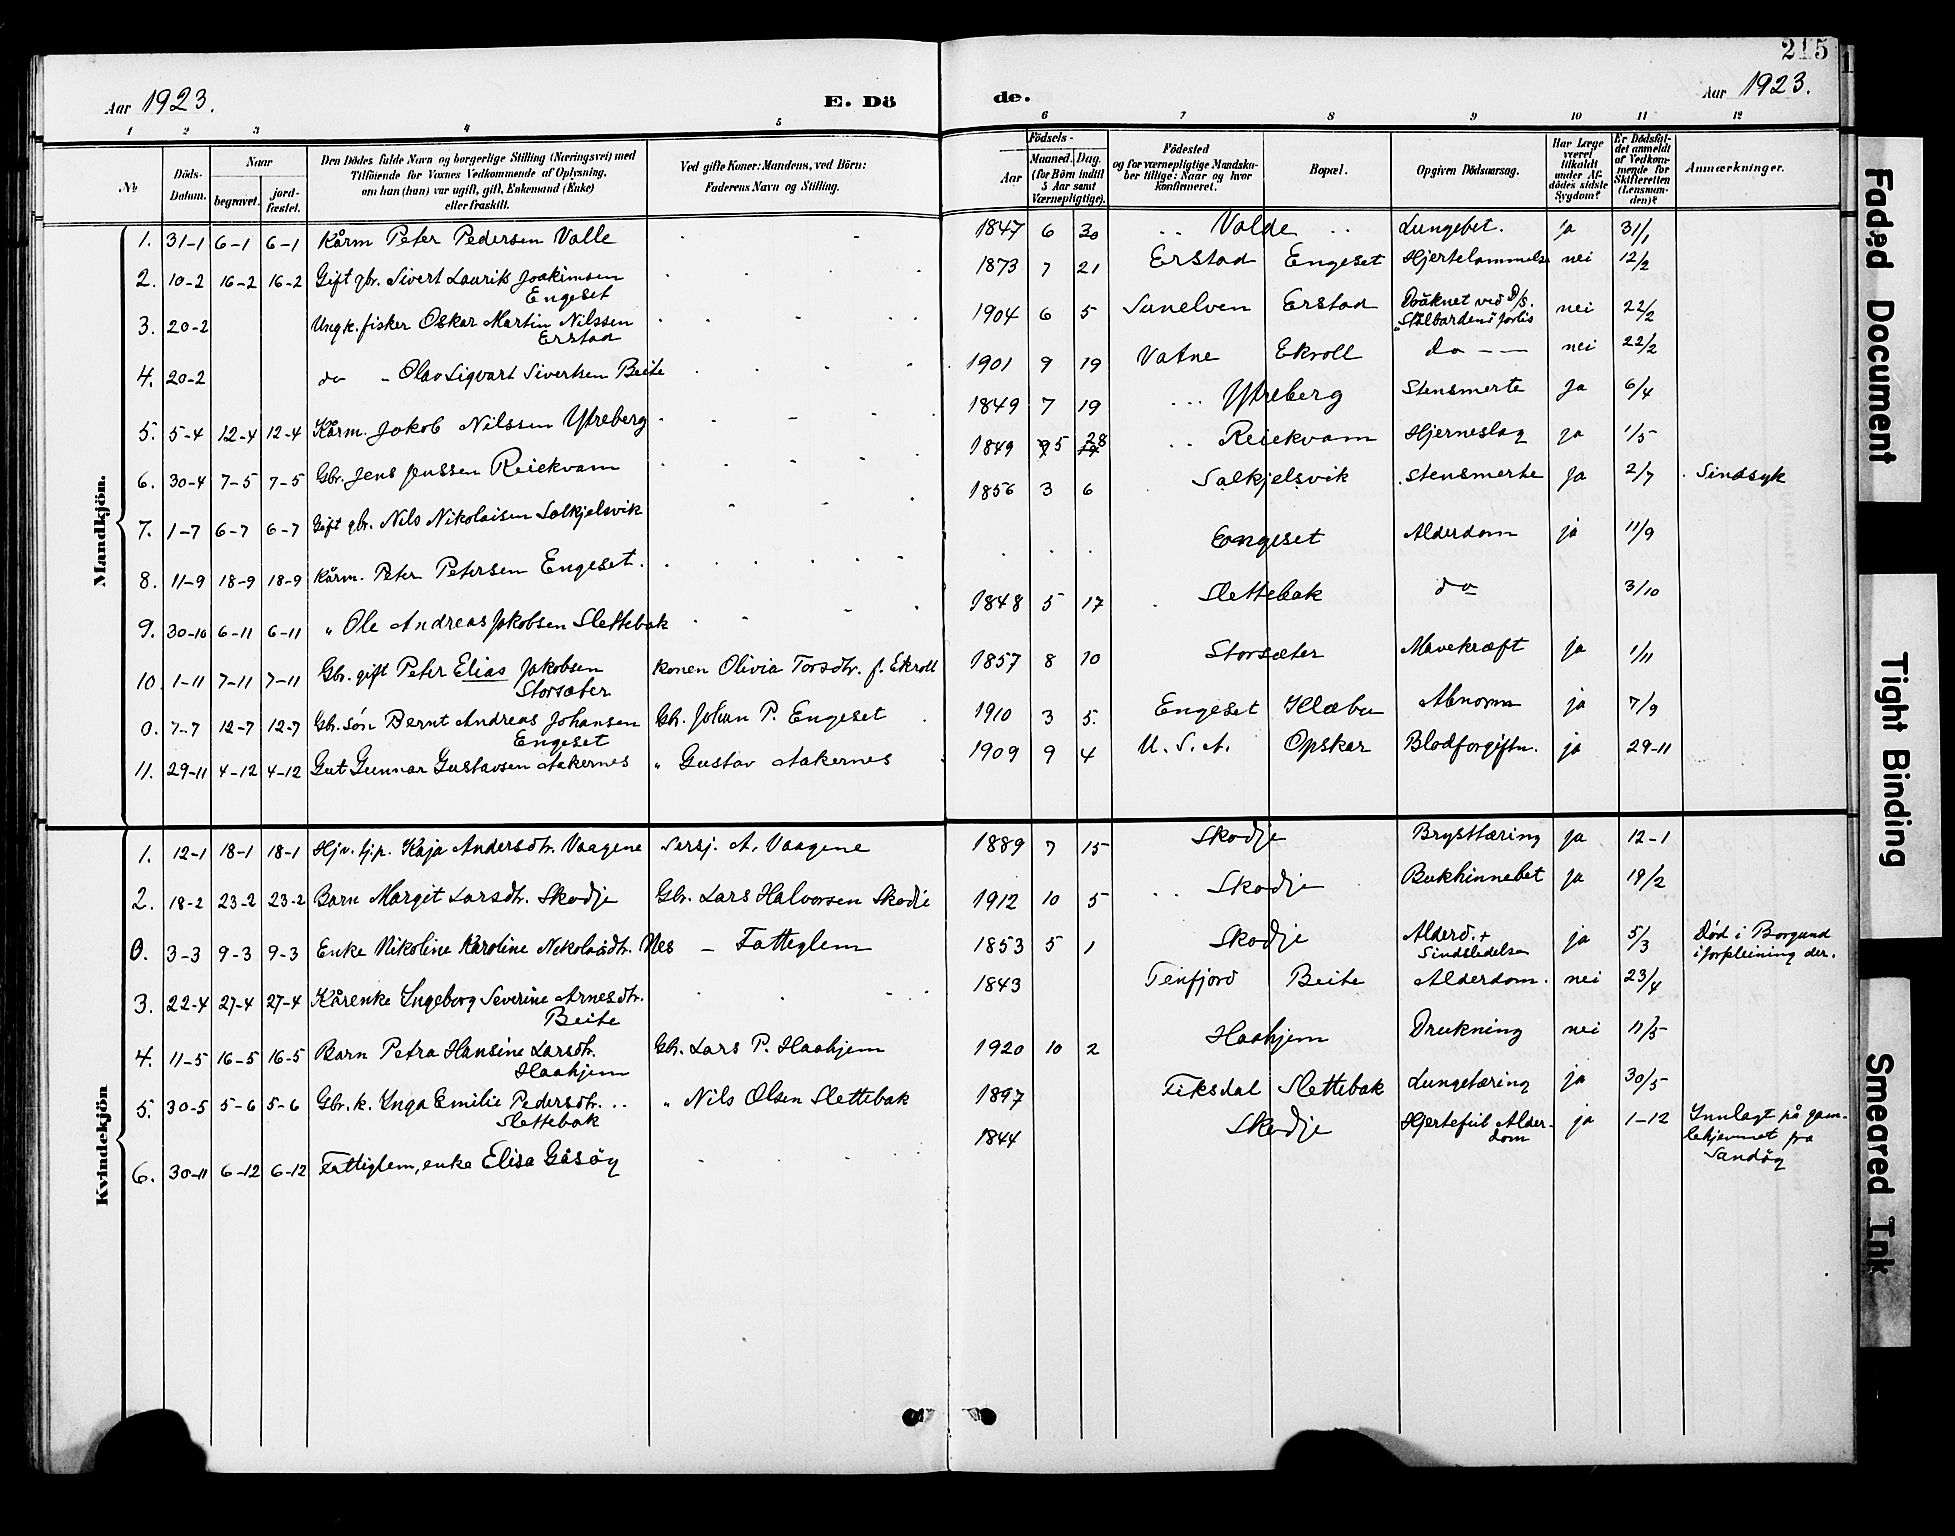 215
Aar 1923. E. Dö de. Aar 1923.
1 2 3 4 5 6 7 8 9 10 11 12
№
Döds-Datum.
Naar
begravet.
jord-fæstet.
Den Dödes fulde Navn og borgerlige Stilling (Næringsvei) med
Tilföiende for Voxnes Vedkommende af Oplysning,
om han (hun) var ugift, gift, Enkemand (Enke)
eller fraskilt.
Ved gifte Koner: Mandens, ved Börn:
Faderens Navn og Stilling.
Födsels-
Aar
Maaned. Dag.
(for Börn indtil
5 Aar samt
Værnepligtige).
Födested
og for værnepligtige Mandska-
ber tillige: Naar og hvor
konfirmeret.
Bopæl.
Opgiven Dödsaarsag.
Har Læge
været
tilkaldt
under Af-
dödes sidste
Sygdom?
Er Dödsfal-
det anmeldt
af Vedkom-
mende for
Skifteretten
(Lensman-
den)?
Anmærkninger.
Mandkjön.
1. 31-1 6-1 6-1 Kårm Peter Pedersen Valle 1847 6 30 Valde Lungebet. ja 31/1
2. 10-2 16-2 16-2 Gift gbr. Sivert Laurits Joakimsen Engeset 1873 7 21 Erstad Engeset Hjertelammelse nei 12/2
3. 20-2 Ungk. fisker Oskar Martin Nilssen Erstad 1904 6 5 Sunelven Erstad Druknet ved D/S. "Stålbarden"s forlis nei 22/2
4. 20-2 do " Olav Sigvart Sivertsen Beite 1901 9 19 Vatne Ekroll do nei 22/2
5. 5-4 12-4 12-4 Kårm. Jakob Nilssen Ytreberg 1849 7 19 Ytreberg Stensmerte Ja 6/4
6. 30-4 7-5 7-5 Gbr. Jens Jenssen Reiekvam 1849 5 28 Reiekvam Hjerneslag ja 1/5
7. 1-7 6-7 6-7 Gift gbr. Nils Nikolaisen Solkjelsvik 1856 3 6 Solkjelsvik Stensmerte Ja 2/7 Sindsyk
8. 11-9 18-9 18-9 Kårm. Peter Petersen Engeset. Engeset Alderdom ja 11/9
9. 30-10 6-11 6-11 " Ole Andreas Jakobsen Slettebak 1848 5 17 Slettebak do 3/10
10. 1-11 7-11 7-11 Gbr. gift Peter Elias Jakobsen Storsæter Konen Olivia Torsdtr. f. Ekroll 1857 8 10 Storsæter Mavekræft ja 1/11
0. 7-7 12-7 12-7 Gb. søn Bernt Andreas Johansen Engeset Gb. Johan P. Engeset 1910 3 5. Engeset Klæbu Abnorm ja 7/9
11. 29-11 4-12 4-12 Gut Gunnar Gustavsen Aakernes " Gustav Aakernes 1909 9 4 U.S.A. Opskar Blodforgiftn. ja 29-11
Kvindekjön
1. 12-1 18-1 18-1 Hjv. hjp. Kaja Andersdtr. Vaagene Sersj. A. Vaagene 1889 7 15 Skodje Brysttæring ja 12-1
2. 18-2 23-2 23-2 Barn Margit Larsdtr. Skodje Gbr. Lars Halvorsen Skodje 1912 10 5 Skodje Bukhinnebet ja 19/2
0. 3-3 9-3 9-3 Enke Nikoline Karoline Nikolaisdtr. Nes - Fattiglem 1853 5 1 Skodje Alderd. + Sindslidelse ja 5/3 Død i Borgund i forpleining der.
3. 22-4 27-4 27-4 Kårenke Ingeborg Severine Arnesdtr. Beite 1843 Tenfjord Beite Alderdom. nei 23/4
4. 11-5 16-5 16-5 Barn Petra Hansine Larsdtr. Haahjem Gb. Lars P. Haahjem 1920 10 2 Haahjem Drukning nei 11/5
5. 30-5 5-6 5-6 Gbr. k. Inga Emilie Pedersdtr. Slettebak " Nils Olsen Slettebak 1897 Fiksdal Slettebak Lungetæring ja 30/5
6. 30-11 6-12 6-12 Fattiglem, enke Elisa Gåsöy 1844 Skodje Hjertefeil Alderdom ja 1-12 Innlagt på gamlehjemmet fra Sandöy
Faded Document
Tight Binding
Smeared Ink